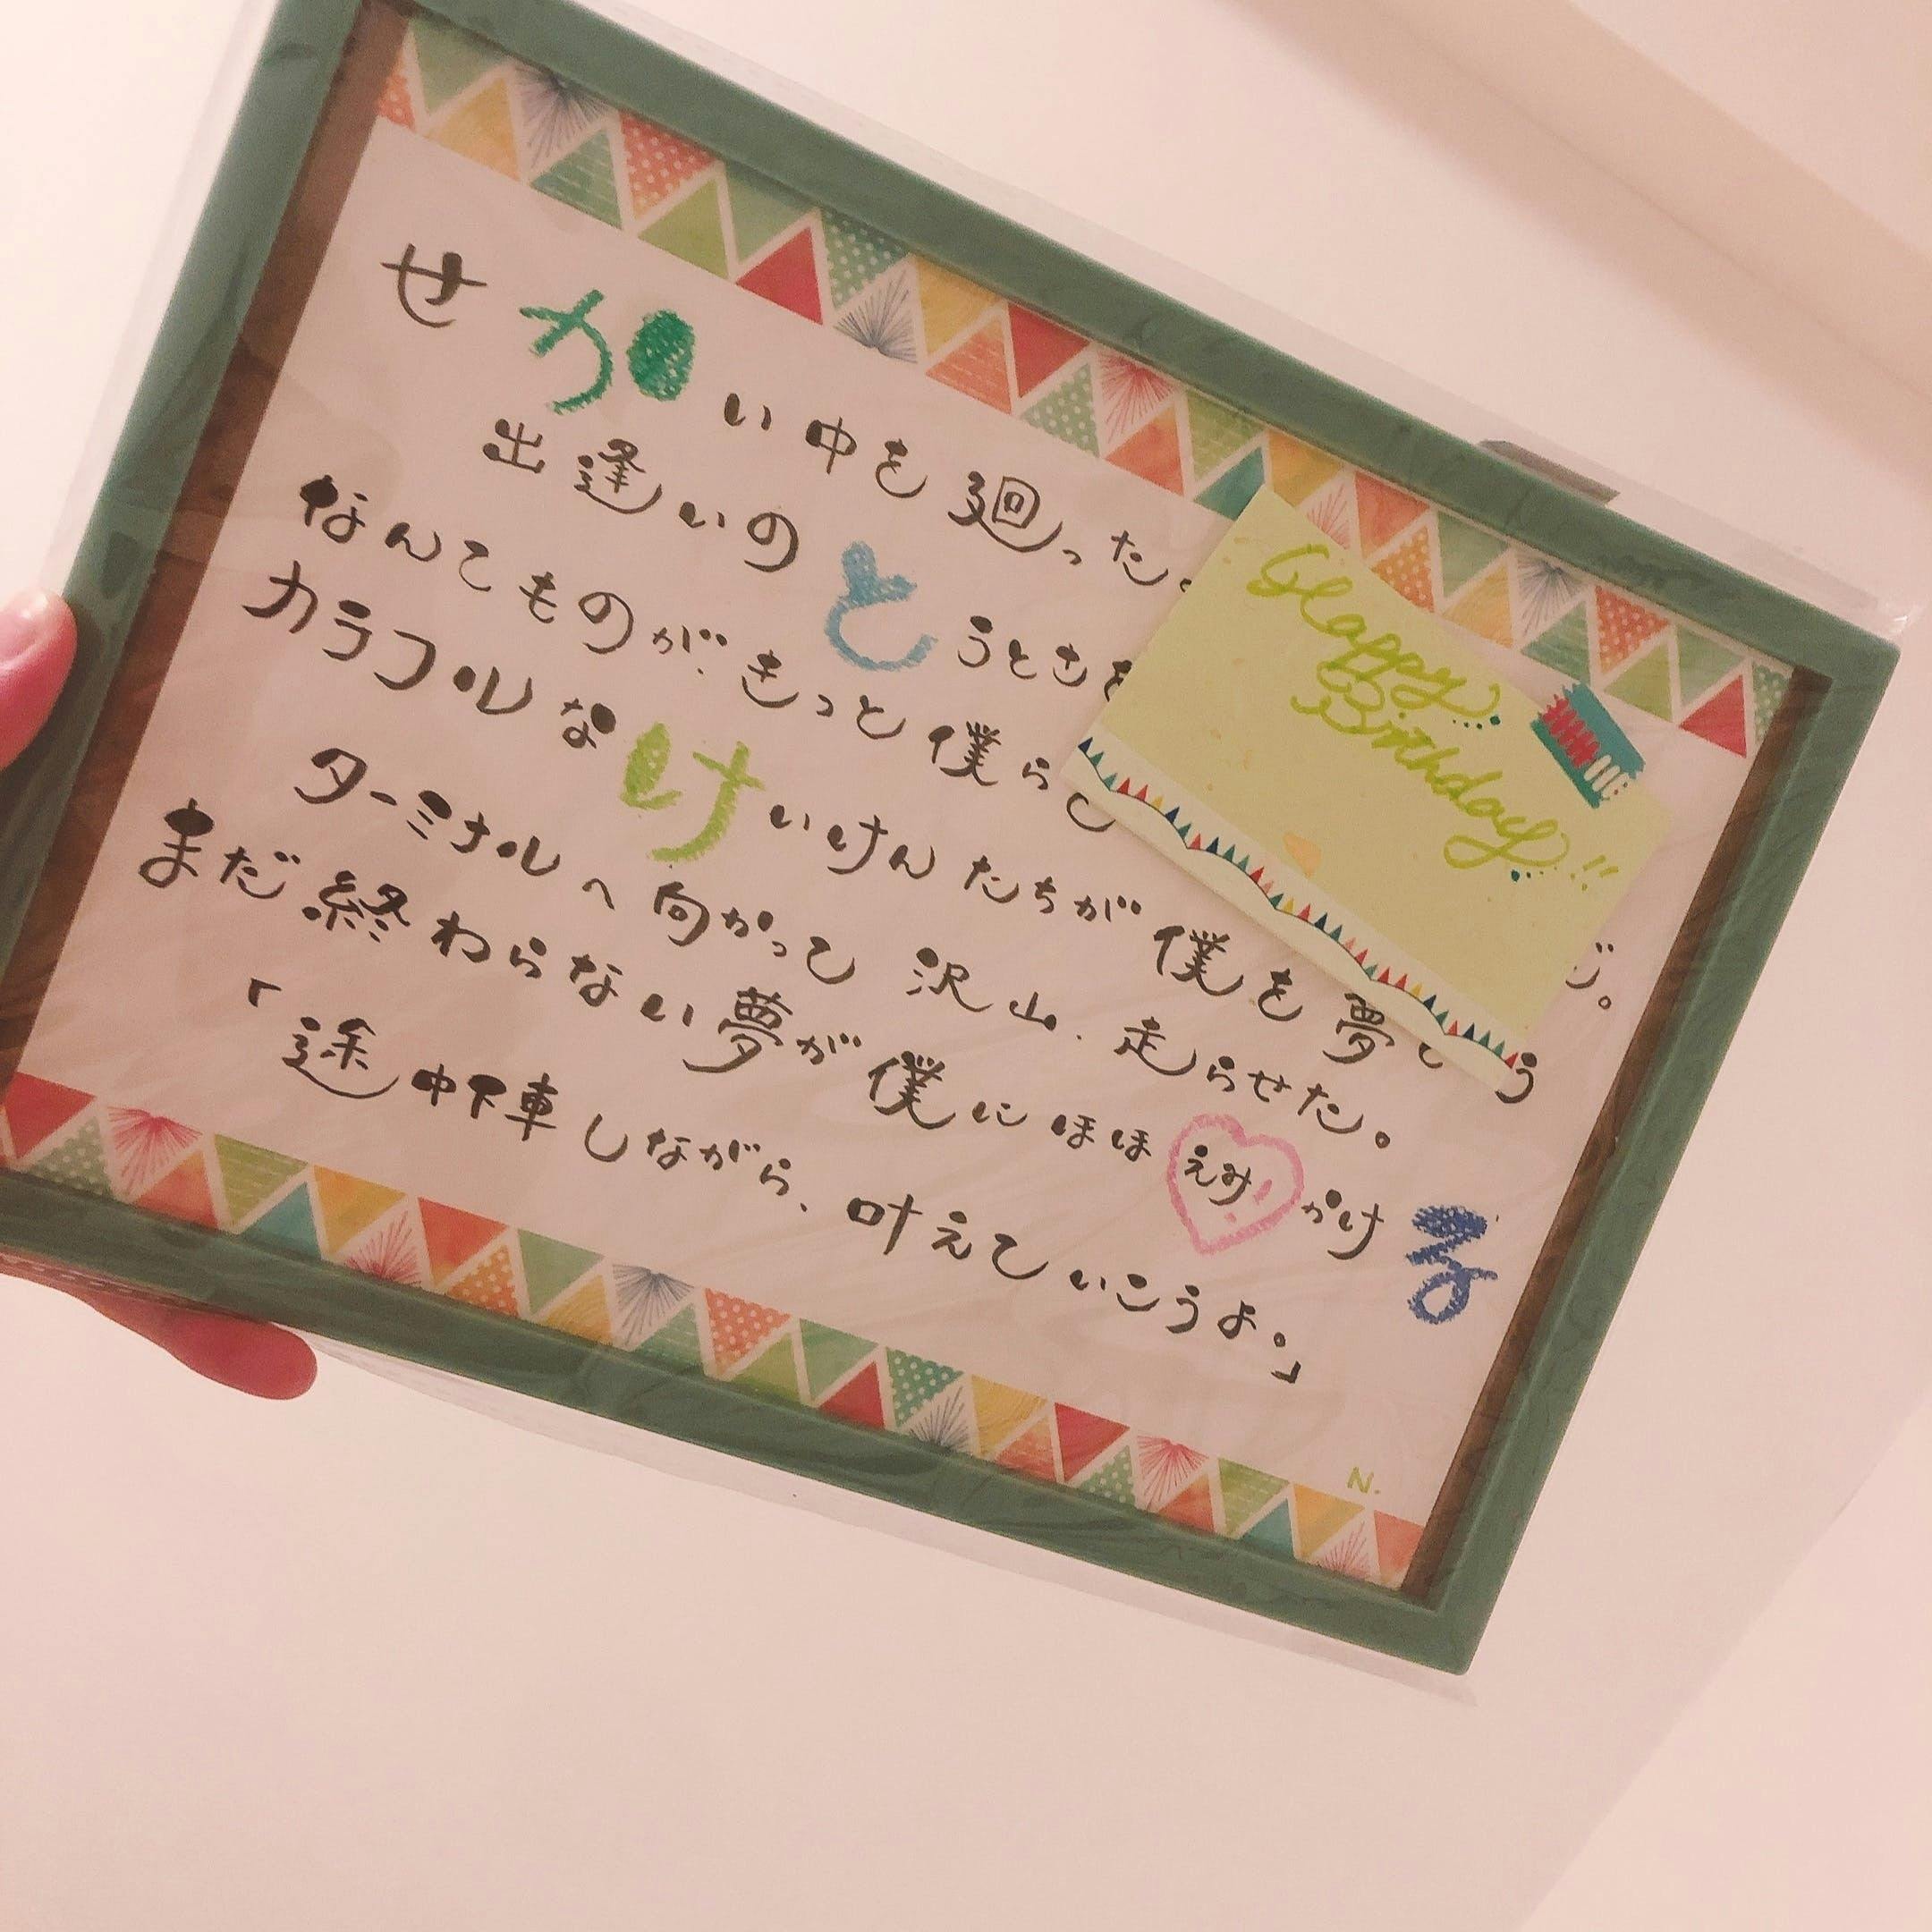 せかい中を廻った。
出逢いのとうとさを
なんてものが、きっと僕らし
ど。
カラフルなけいけんたちが僕を夢
う
ターミナルへ向かって沢山、走らせた。
まだ終わらない夢が僕にほほえみかける
「途中下車しながら、叶えていこうよ。」
N.
Happy
Birthday!!